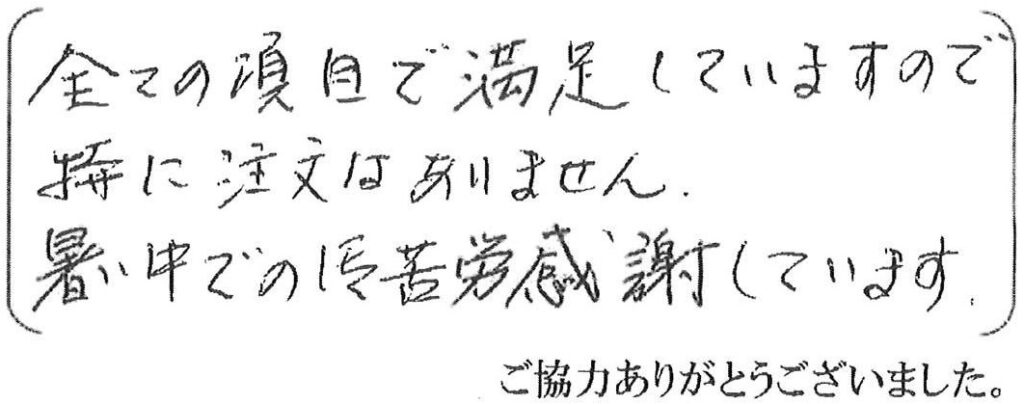 全ての項目で満足していますので
特に注文はありません.
暑い中での御苦労感謝しています.
ご協力ありがとうございました。